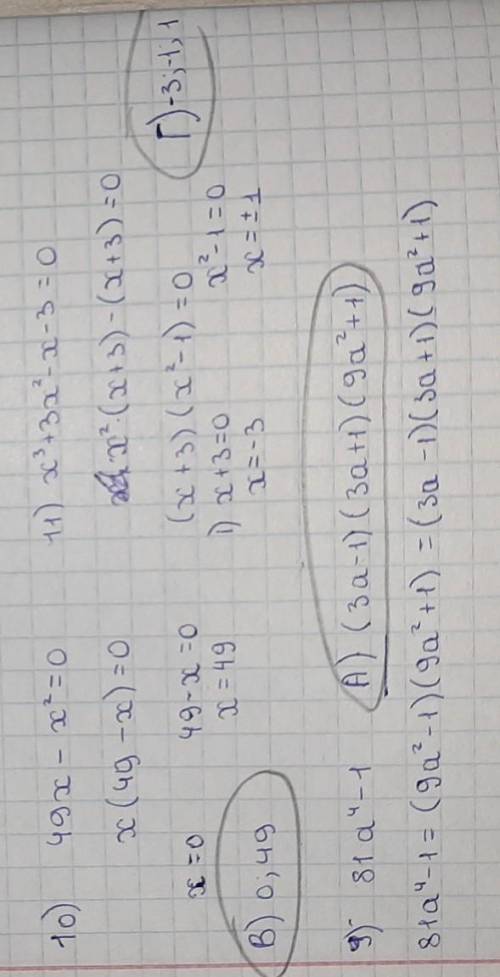 10) 49x - x² = 0
x(49 - x) = 0
x = 0    49 - x = 0
x = 49
В) 0; 49
11) x³ + 3x² - x - 3 = 0
x²·(x+3) - (x+3) = 0
(x+3)(x² - 1) = 0
1) x+3=0    x² - 1 = 0
x = -3    x = ±1
Г) -3; -1; 1
9) 81a⁴ - 1    А) (3a-1)(3a+1)(9a²+1)
81a⁴ - 1 = (9a² - 1)(9a² + 1) = (3a - 1)(3a + 1)(9a² + 1)